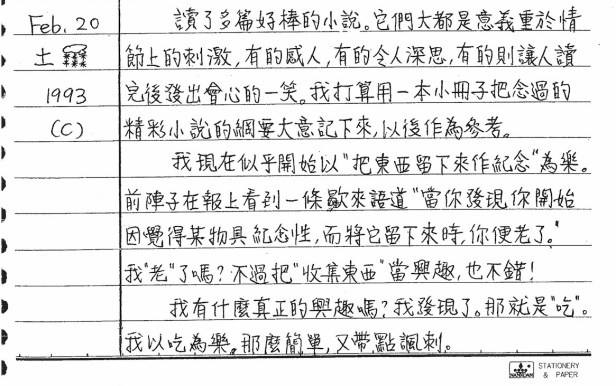 Feb. 20 讀了多篇好棒的小說。它們大都是意義重於情
土 節上的刺激,有的感人,有的令人深思,有的則讓人讀
1993 完後發出會心的一笑。我打算用一本小冊子把念過的
(C) 精彩小說的綱要大意記下來,以後作為參考。
我現在似乎開始以"把東西留下來作紀念"為樂。
前陣子在報上看到一條歇來語道"當你發現你開始
因覺得某物具紀念性,而將它留下來時,你便老了。"
我"老"了嗎?不過把"收集東西"當興趣,也不錯!
我有什麼真正的興趣嗎?我發現了。那就是"吃"。
我以吃為樂。那麼簡單,又帶點諷刺。
STATIONERY
& PAPER